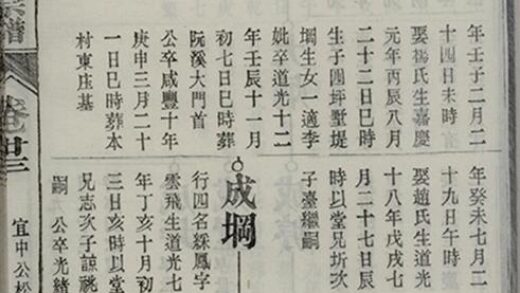 年壬子二月二
十四日未時
娶楊氏生嘉慶
元年丙辰八月
二十二日巳時
生子圍坪墅堤
堈生女一適李
妣卒道光十二
年壬辰十一月
初七日巳時葬
阮溪大門首
公卒咸豐十年
庚申三月二十
一日巳時葬本
村東庄基
年癸未七月二
十九日午時
娶趙氏生道光
十八年戊戌七
月二十七日辰
時以堂兄圻次
子臺繼嗣
成堈
行四名綵鳳字
雲飛生道光七
年丁亥十月初
三日亥時以堂
兄志次子諒祧
嗣 公卒光緒
宗譜
卷廿三
宜中公松